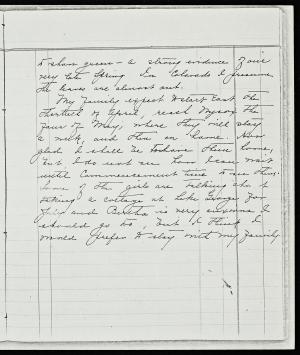 to show green - a strong evidence of our
very late Spring. In Colorado I presume
the leaves are almost out.
My family expect to start East the
thirtieth of April, reach the
four of May, where they will stay
a week, and then on home. How
glad I shall be to have them home,
but I do not see how I can wait
until Commencement time to see them.
Some of the girls are talking about
taking a cottage at Lake George for
July and Bertha is very anxious I
should go too, but I think I
would prefer to stay with my family